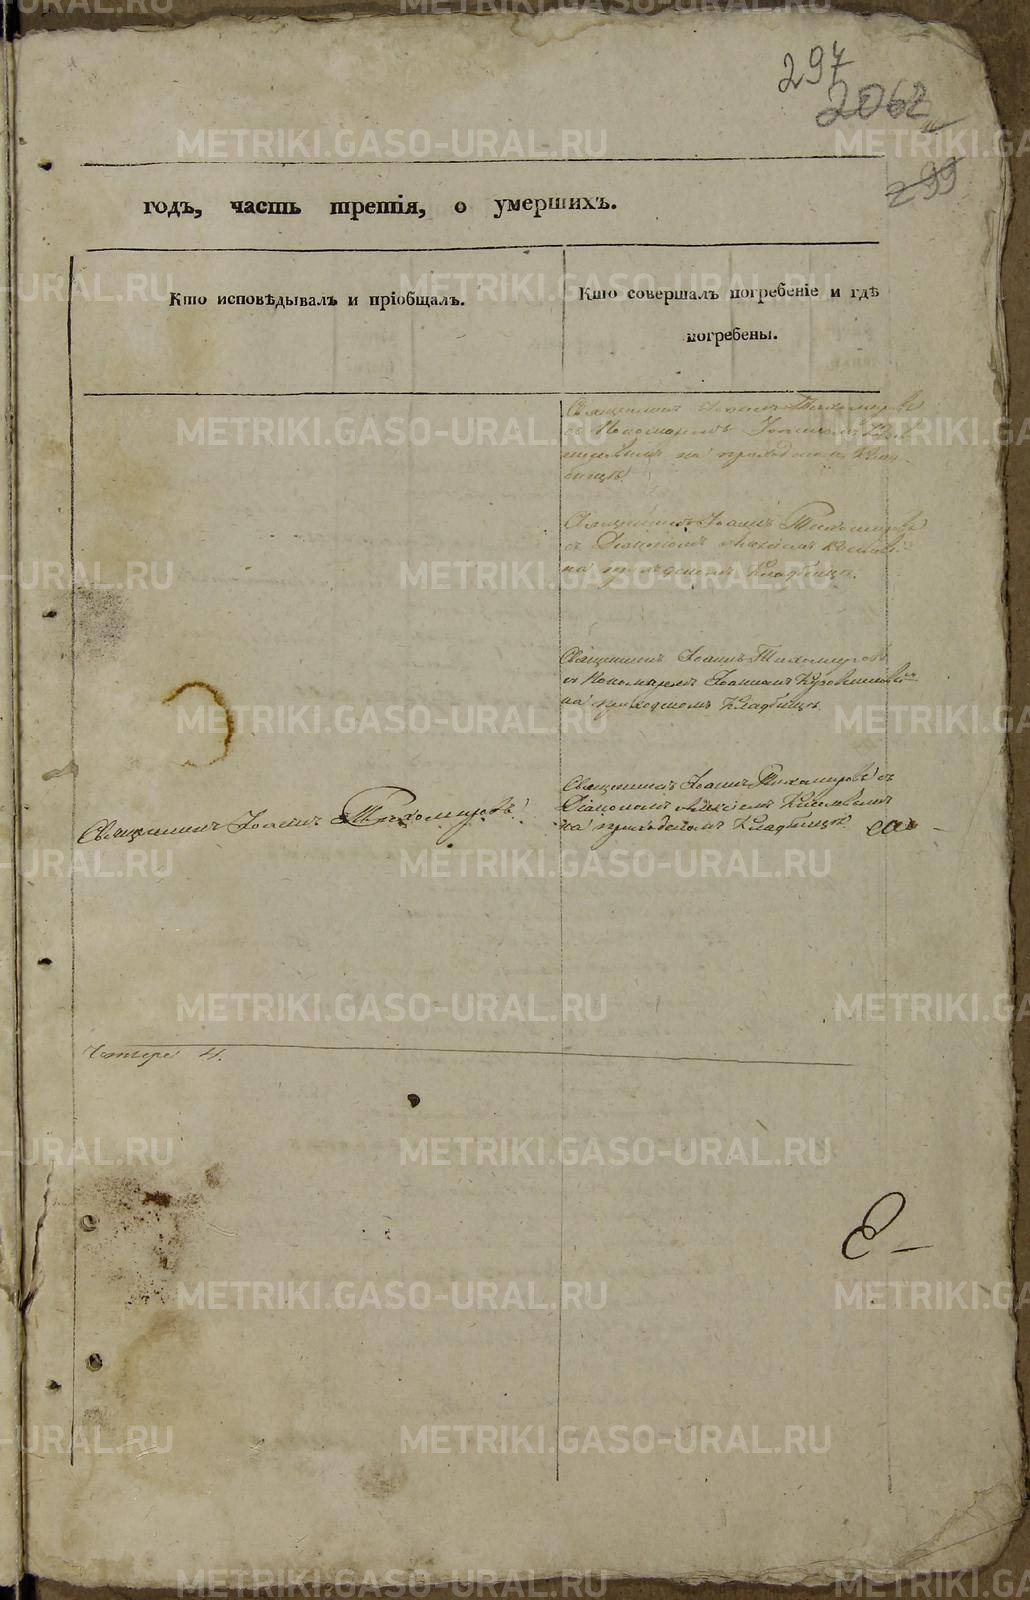 297
2062
299
годъ, часть третія, о умершихъ.
Кто исповѣдывалъ и пріобщалъ.
Кто совершалъ погребеніе и гдѣ
погребены.
Священникъ Іоаннъ Тихомировъ
съ Пономаремъ Іоанномъ
на приходскомъ Клад-
бищѣ.
Священникъ Іоаннъ Тихомировъ
съ Діакономъ Алексіемъ
на приходскомъ Кладбищѣ.
Священникъ Іоаннъ Тихомировъ
съ Пономаремъ Іоанномъ
на приходскомъ Кладбищѣ.
Священникъ Іоаннъ Тихомировъ съ
Діакономъ Алексіемъ
на приходскомъ Кладбищѣ.
Священникъ Іоаннъ Тихомировъ.
Четыре 4.
METRIKI.GASO-URAL.RU